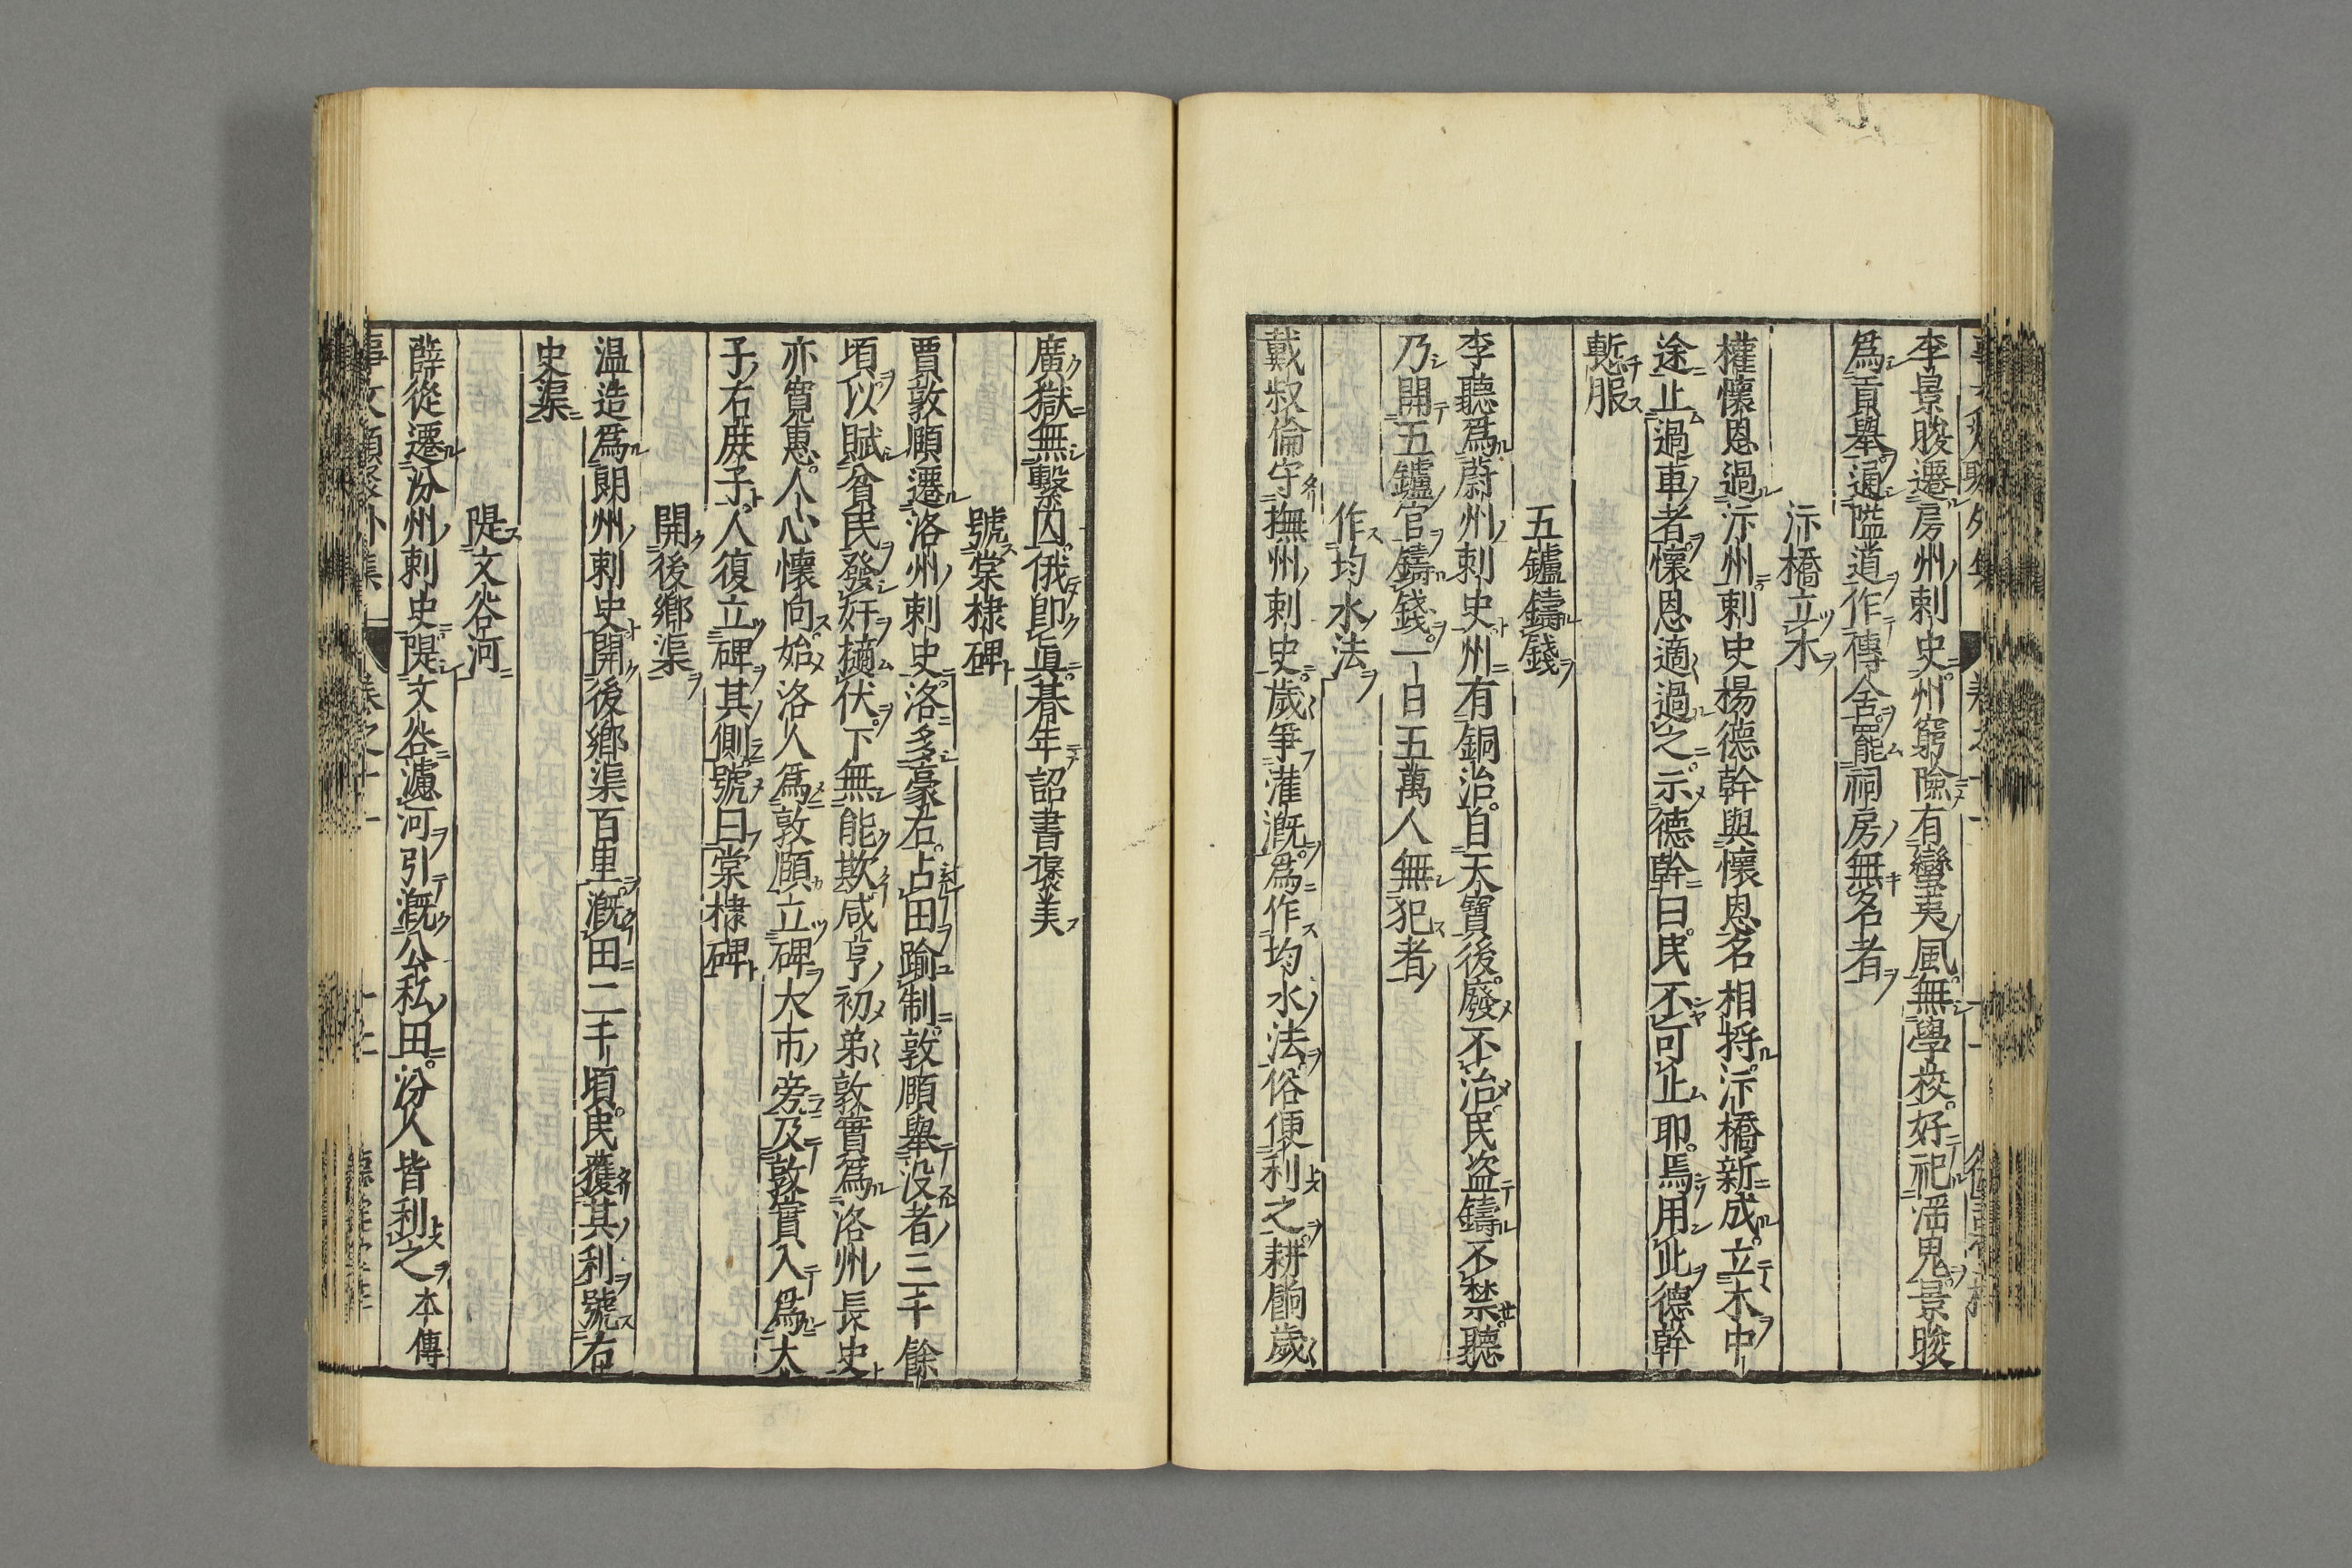 李景晙遷房州刺史州窮險有蠻夷風無學校好祀滛鬼景晙
爲貢舉通隘道作傳舍罷祠房無名者
汴橋立木
權懷恩過汴州刺史楊德幹與懷恩名相捋汴橋新成立木中
途止過車者懷恩適過之示德幹曰民不可止耶焉用此德幹
慙服
五鑪鑄錢
李聽爲蔚州刺史州有銅冶自天寶後廢不治民盗鑄不禁聽
乃開五鑪官鑄錢一日五萬人無犯者
作均水法
戴叔倫守撫州刺史歲爭灌漑爲作均水法俗便利之耕餉歲
廣獄無繫囚俄即眞朞年詔書褒美
號棠棣碑
賈敦頤遷洛州刺史洛多豪右占田踰制敦頤舉没者三千餘
頃以賦貧民發奸擿伏下無能欺咸亨初弟敦實爲洛州長史
亦寬惠人心懷向始洛人爲敦頤立碑大市旁及敦實入爲太
子右庶子人復立碑其側號曰棠棣碑
開後鄉渠
温造爲朗州刺史開後鄉渠百里漑田二千頃民獲其利號右
史渠
隄文谷河
薛從遷汾州刺史隄文谷濾河引漑公私田汾人皆利之 本傳